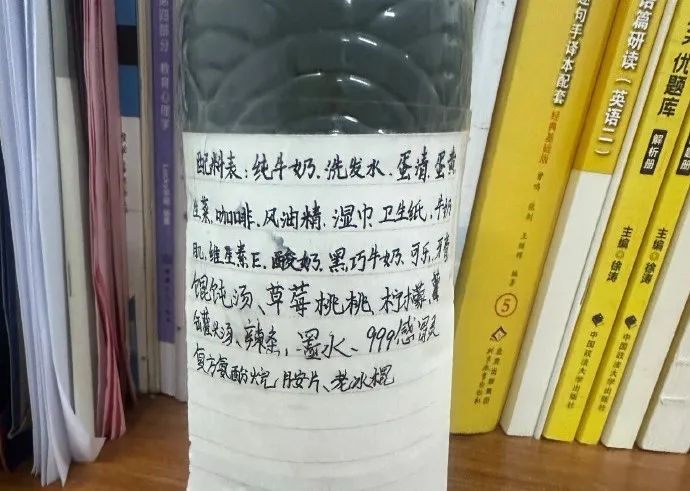 配料表:纯牛奶、洗发水、蛋清、蛋黄
咖啡、风油精、湿巾、卫生纸、牛奶
肌、维生素E、酸奶、黑巧牛奶、可乐、
馄饨汤、草莓桃桃、柠檬、
汤、辣条,墨水、999感冒灵
复方氨酚烷胺片、老冰棍
第四部分 教育心理学
句句手译本配套
经典基础版
编著
5
语篇研读(英语二)
主编◎徐涛
中国政法大学出版社
优题库
解析册
主编◎徐涛
中国政法大学出版社